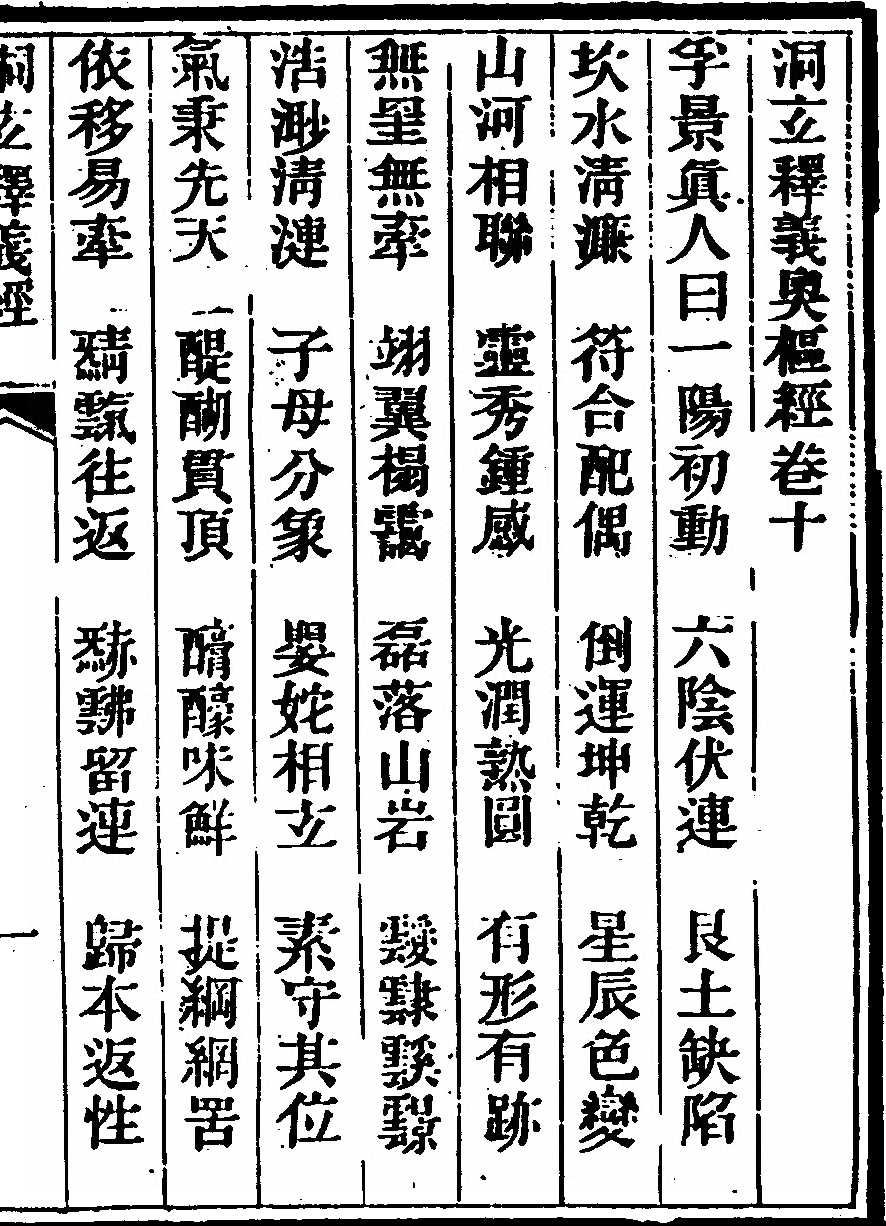 洞玄釋義奧樞經卷十
孚景眞人曰一陽初動 六陰伏連 艮土缺陷
坎水清濂 符合配偶 倒運坤乾 星辰色變
山河相聯 靈秀鍾感 光潤熟圓 有形有跡
無罣無牽 翊翼榻靄 磊落山岩
浩渺清漣 子母分象 嬰姹相玄 素守其位
氣秉先天 醍醐貫頂 味鮮 捉綱網罟
依移易牽 往返 留連 歸本返性
洞玄釋義經
一